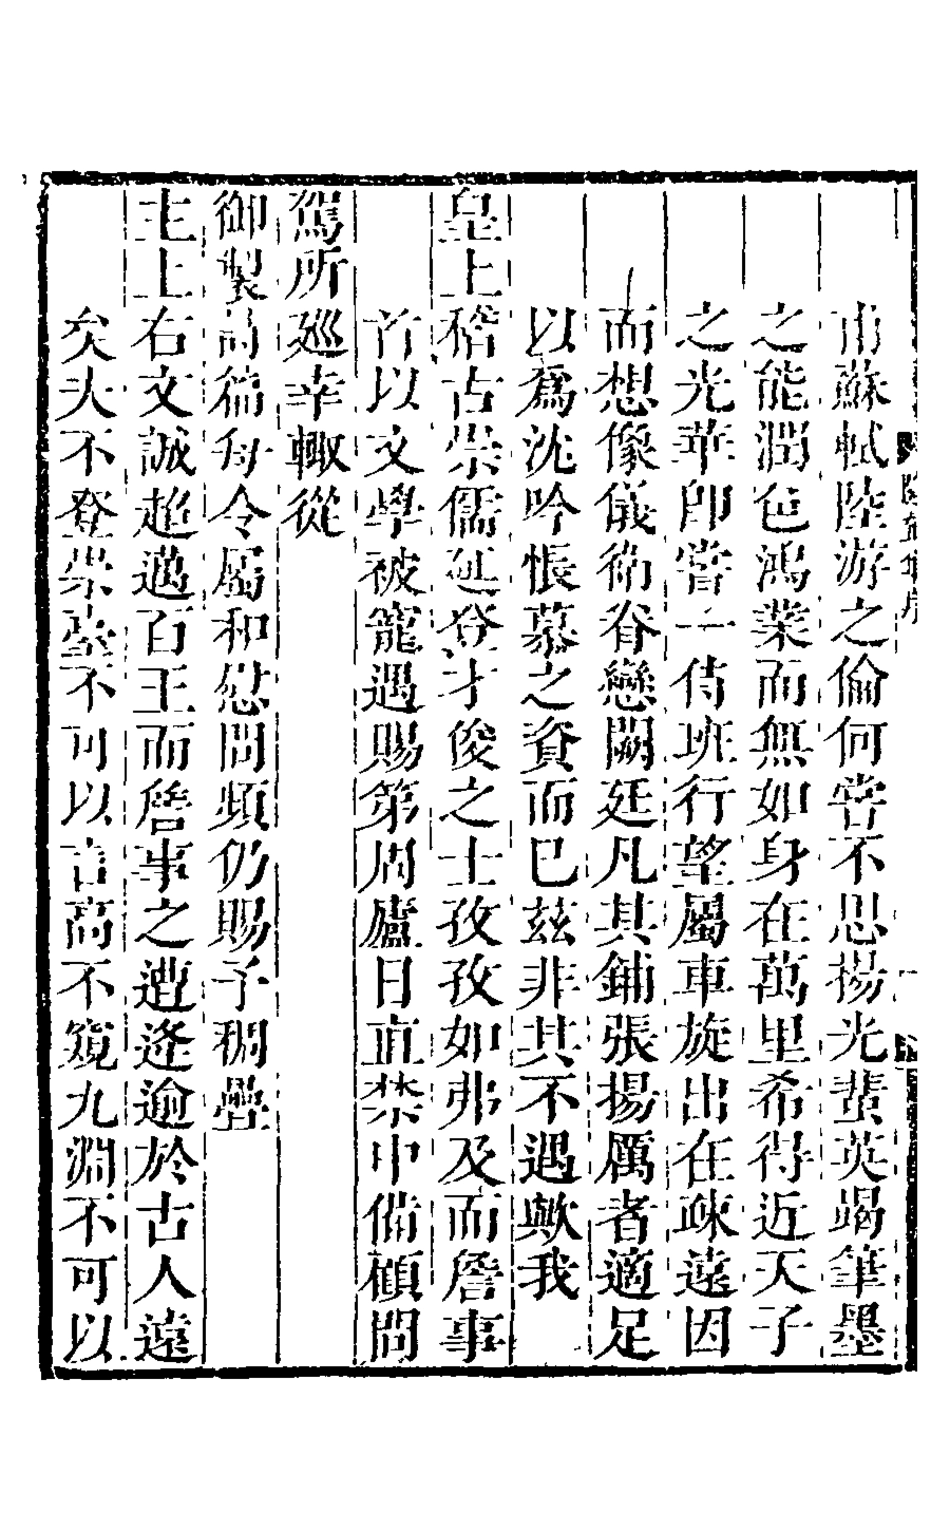 甫蘇軾陸游之倫何嘗不思揚光蜚英竭筆墨
之能潤色鴻業而無如身在萬里希得近天子
之光華卽嘗一侍班行望屬車旋出在疎遠因
而想像儀衛眷戀闕廷凡其鋪張揚厲者適足
以爲沈吟悵慕之資而已玆非其不遇歟我
皇上稽古崇儒延登才俊之士孜孜如弗及而詹事
首以文學被寵遇賜第周廬日直禁中備顧問
駕所廵幸輙從
御製詩徧每令屬和慰問頻仍賜予稠疊
主上右文誠超邁百王而詹事之遭逢逾於古人遠
矣夫不登崇臺不可以言高不窺九淵不可以